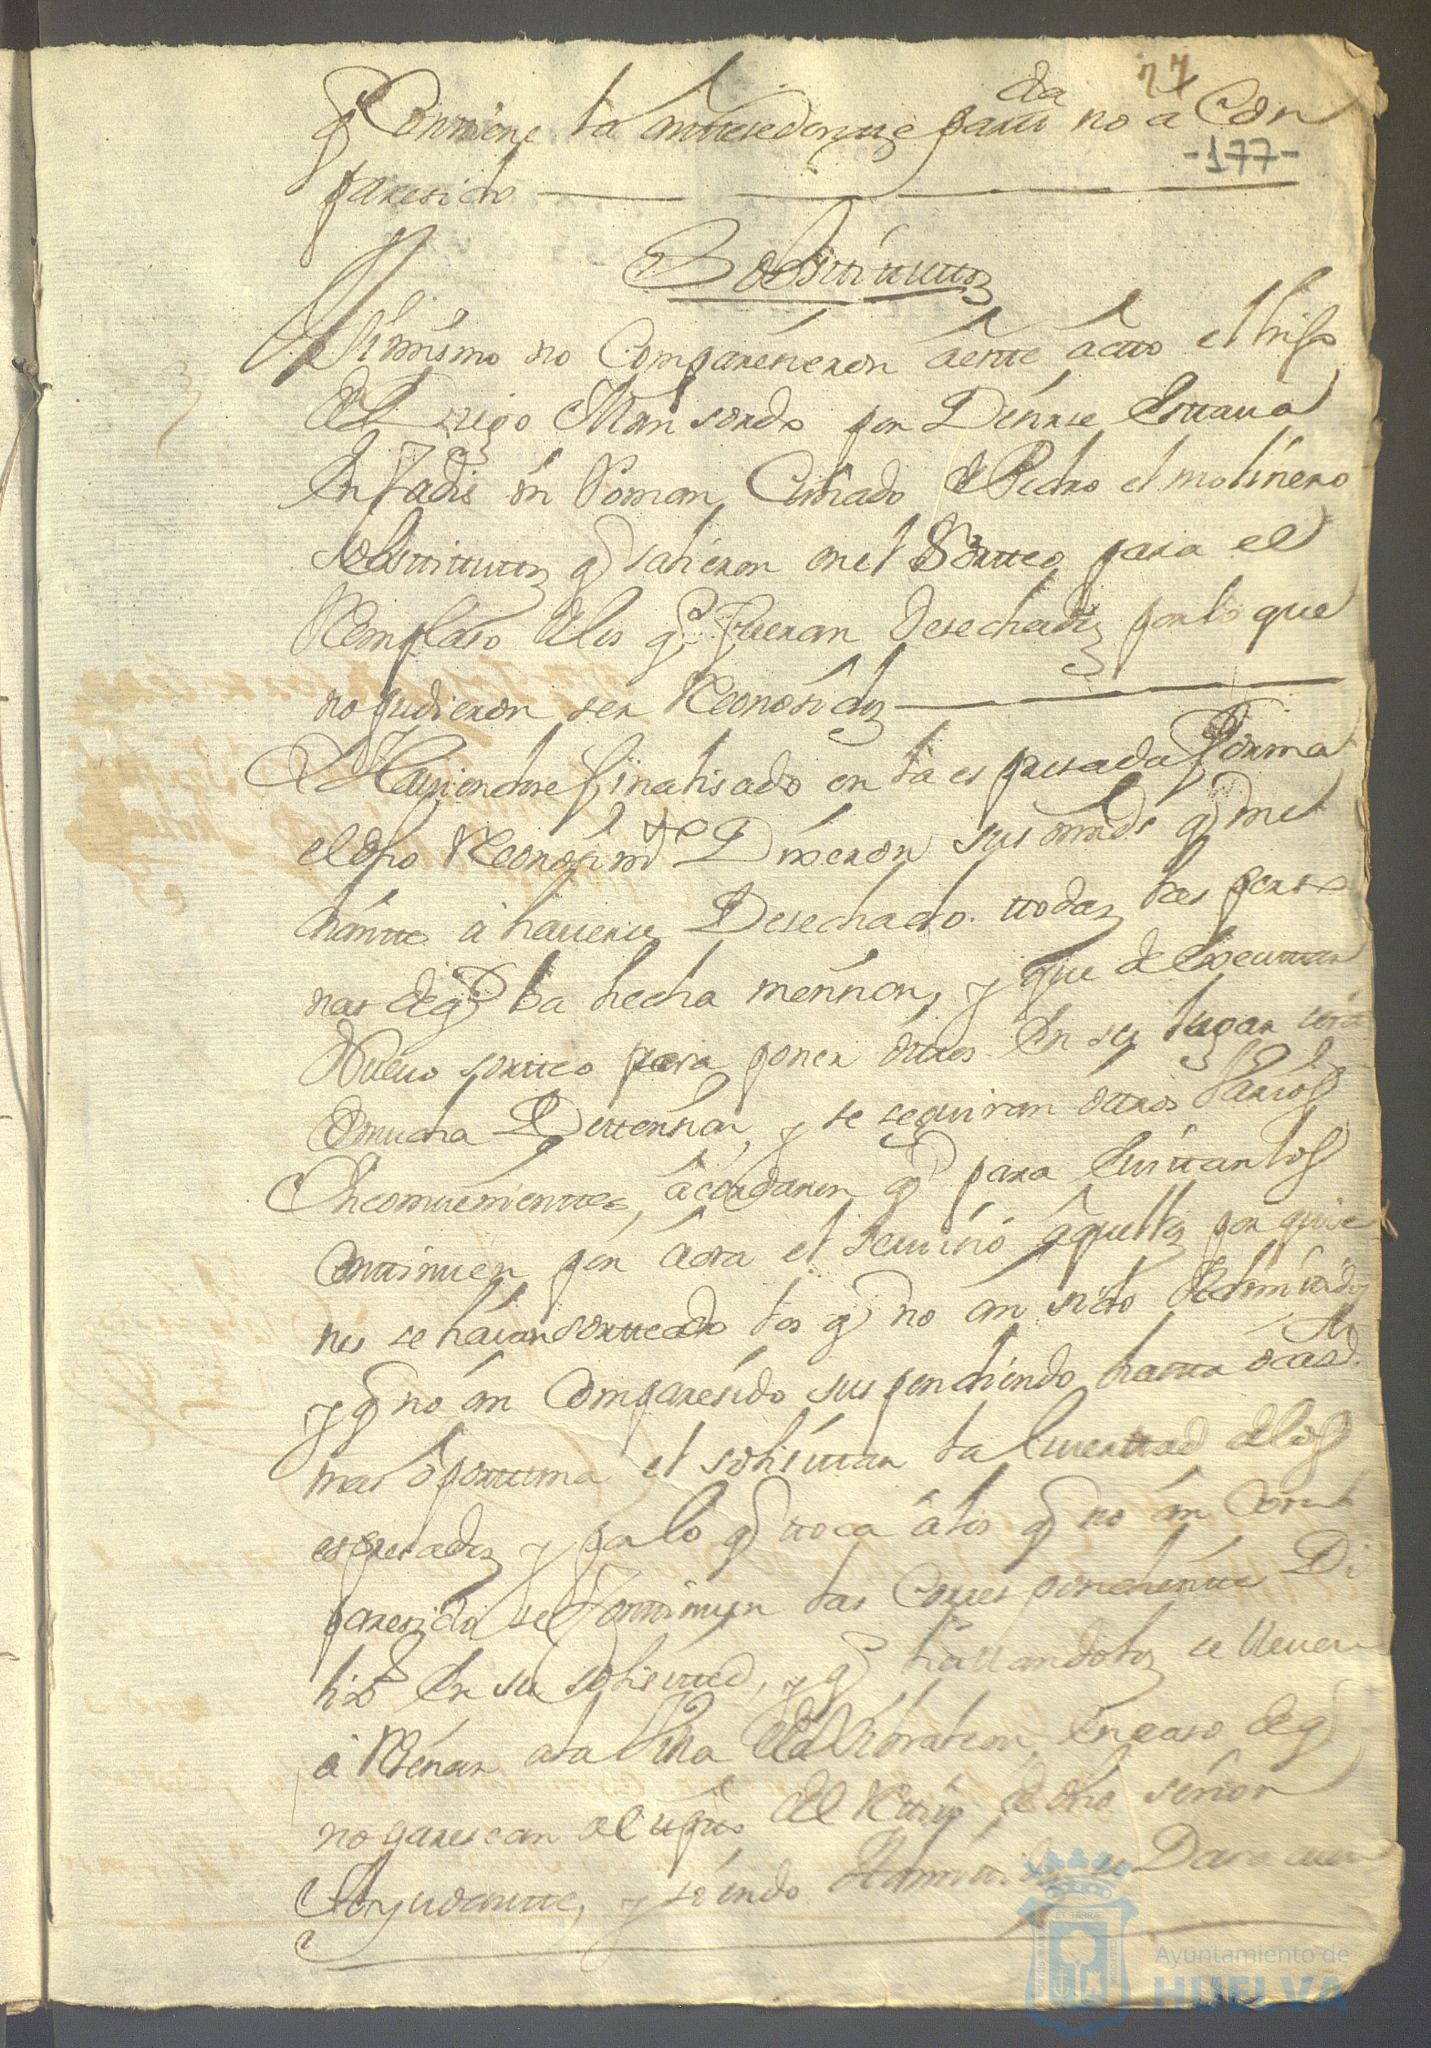 77
q Contiene la antesedente partida no a Con
-177-
paresido
Sobstitutos
Asimismo no Comparesieron aeste acto el hijo
de Diego Man sordo por Desirse Estava
En Cadis ni Roman Cuñado de Pedro el molinero
sobstitutos q salieron en el Sorteo para el
Remplaso delos q fueran Desechados por lo que
no pudieron ser Reconosidos
Y Haviendose finalisado en la espresada forma
el dho Reconosimto Dixeron sus mrds q me
diante a haverse Desechado todas las perso
nas de q ba hecha mension, y que de Executar
Nuevo sorteo para poner otros En su lugar será
demucha Detension, y se seguiran otros Varios
Incombenientes, acordaron q para Evitarlos
Continuen por aora el servisio aquellos por quie
nes se havian sorteado los q no an sido Admitidos
y q no an Comparesido suspendiendo hasta ocasn
mas oportuna el solisitar la livertad delos
espresados y pa lo q toca a los q no an Com
paresido se Continuen las Correspondientes Di
lixs En su solisitud, y q hallandolos se lleven
a Resenar ala Villa de la Redondela, En caso de q
no paresean al tpo del Retiro de dho señor
Ayudante, y siendo Admitidos se Dara cuen
Ayuntamiento de
HUELVA